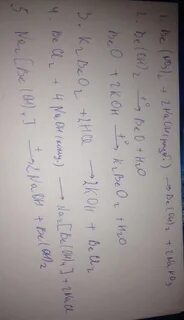 1. Be(NO3)2 + 2NaOH(разб) → Be(OH)2 + 2NaNO3
2. Be(OH)2 t° → BeO + H2O
BeO + 2KOH t° → K2BeO2 + H2O
3. K2BeO2 + 2HCl → 2KOH + BeCl2
4. BeCl2 + 4NaOH(конц) → Na2[Be(OH)4] + 2NaCl
5 Na2[Be(OH)4] t → 2NaOH + Be(OH)2